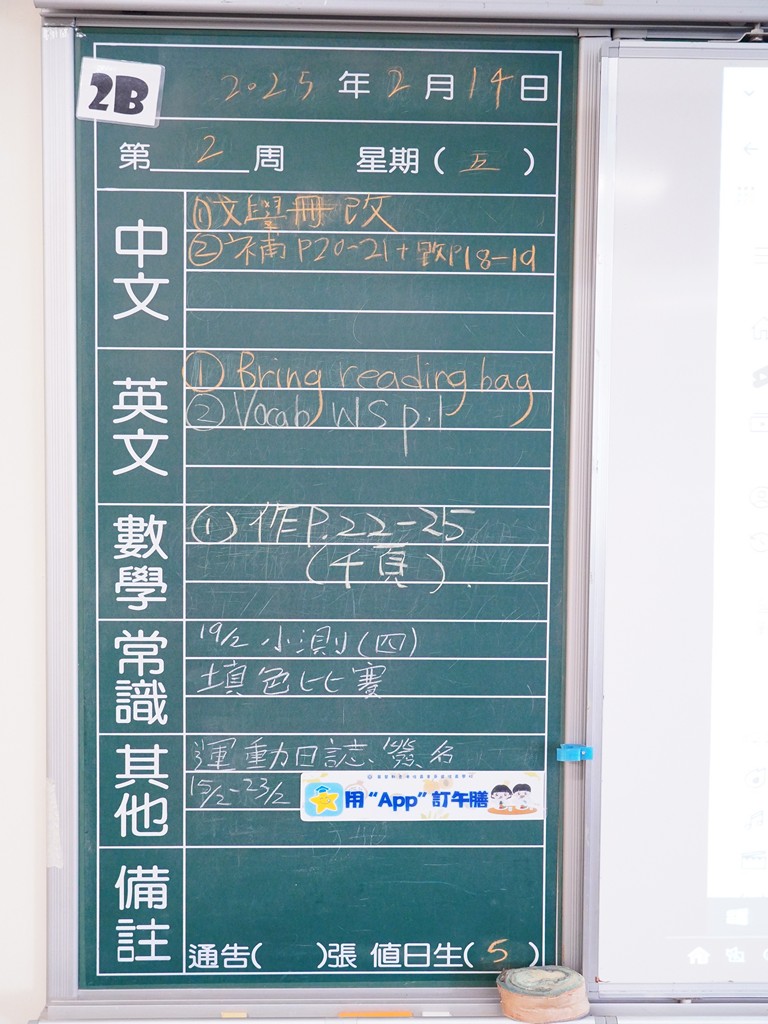 2B
2025年2月14日
第2周 星期(五)
中文
①文學冊改
②補P20-21+
P18-19
英文
① Bring reading bag
② Vocab WS p.1
數學
① 作P.22-25
(千頁).
常識
19/2 小測(四)
填色比賽
其他
運動日誌、簽名
15/2-23/2
用“App”訂午膳
備註
通告( )張 值日生(5)